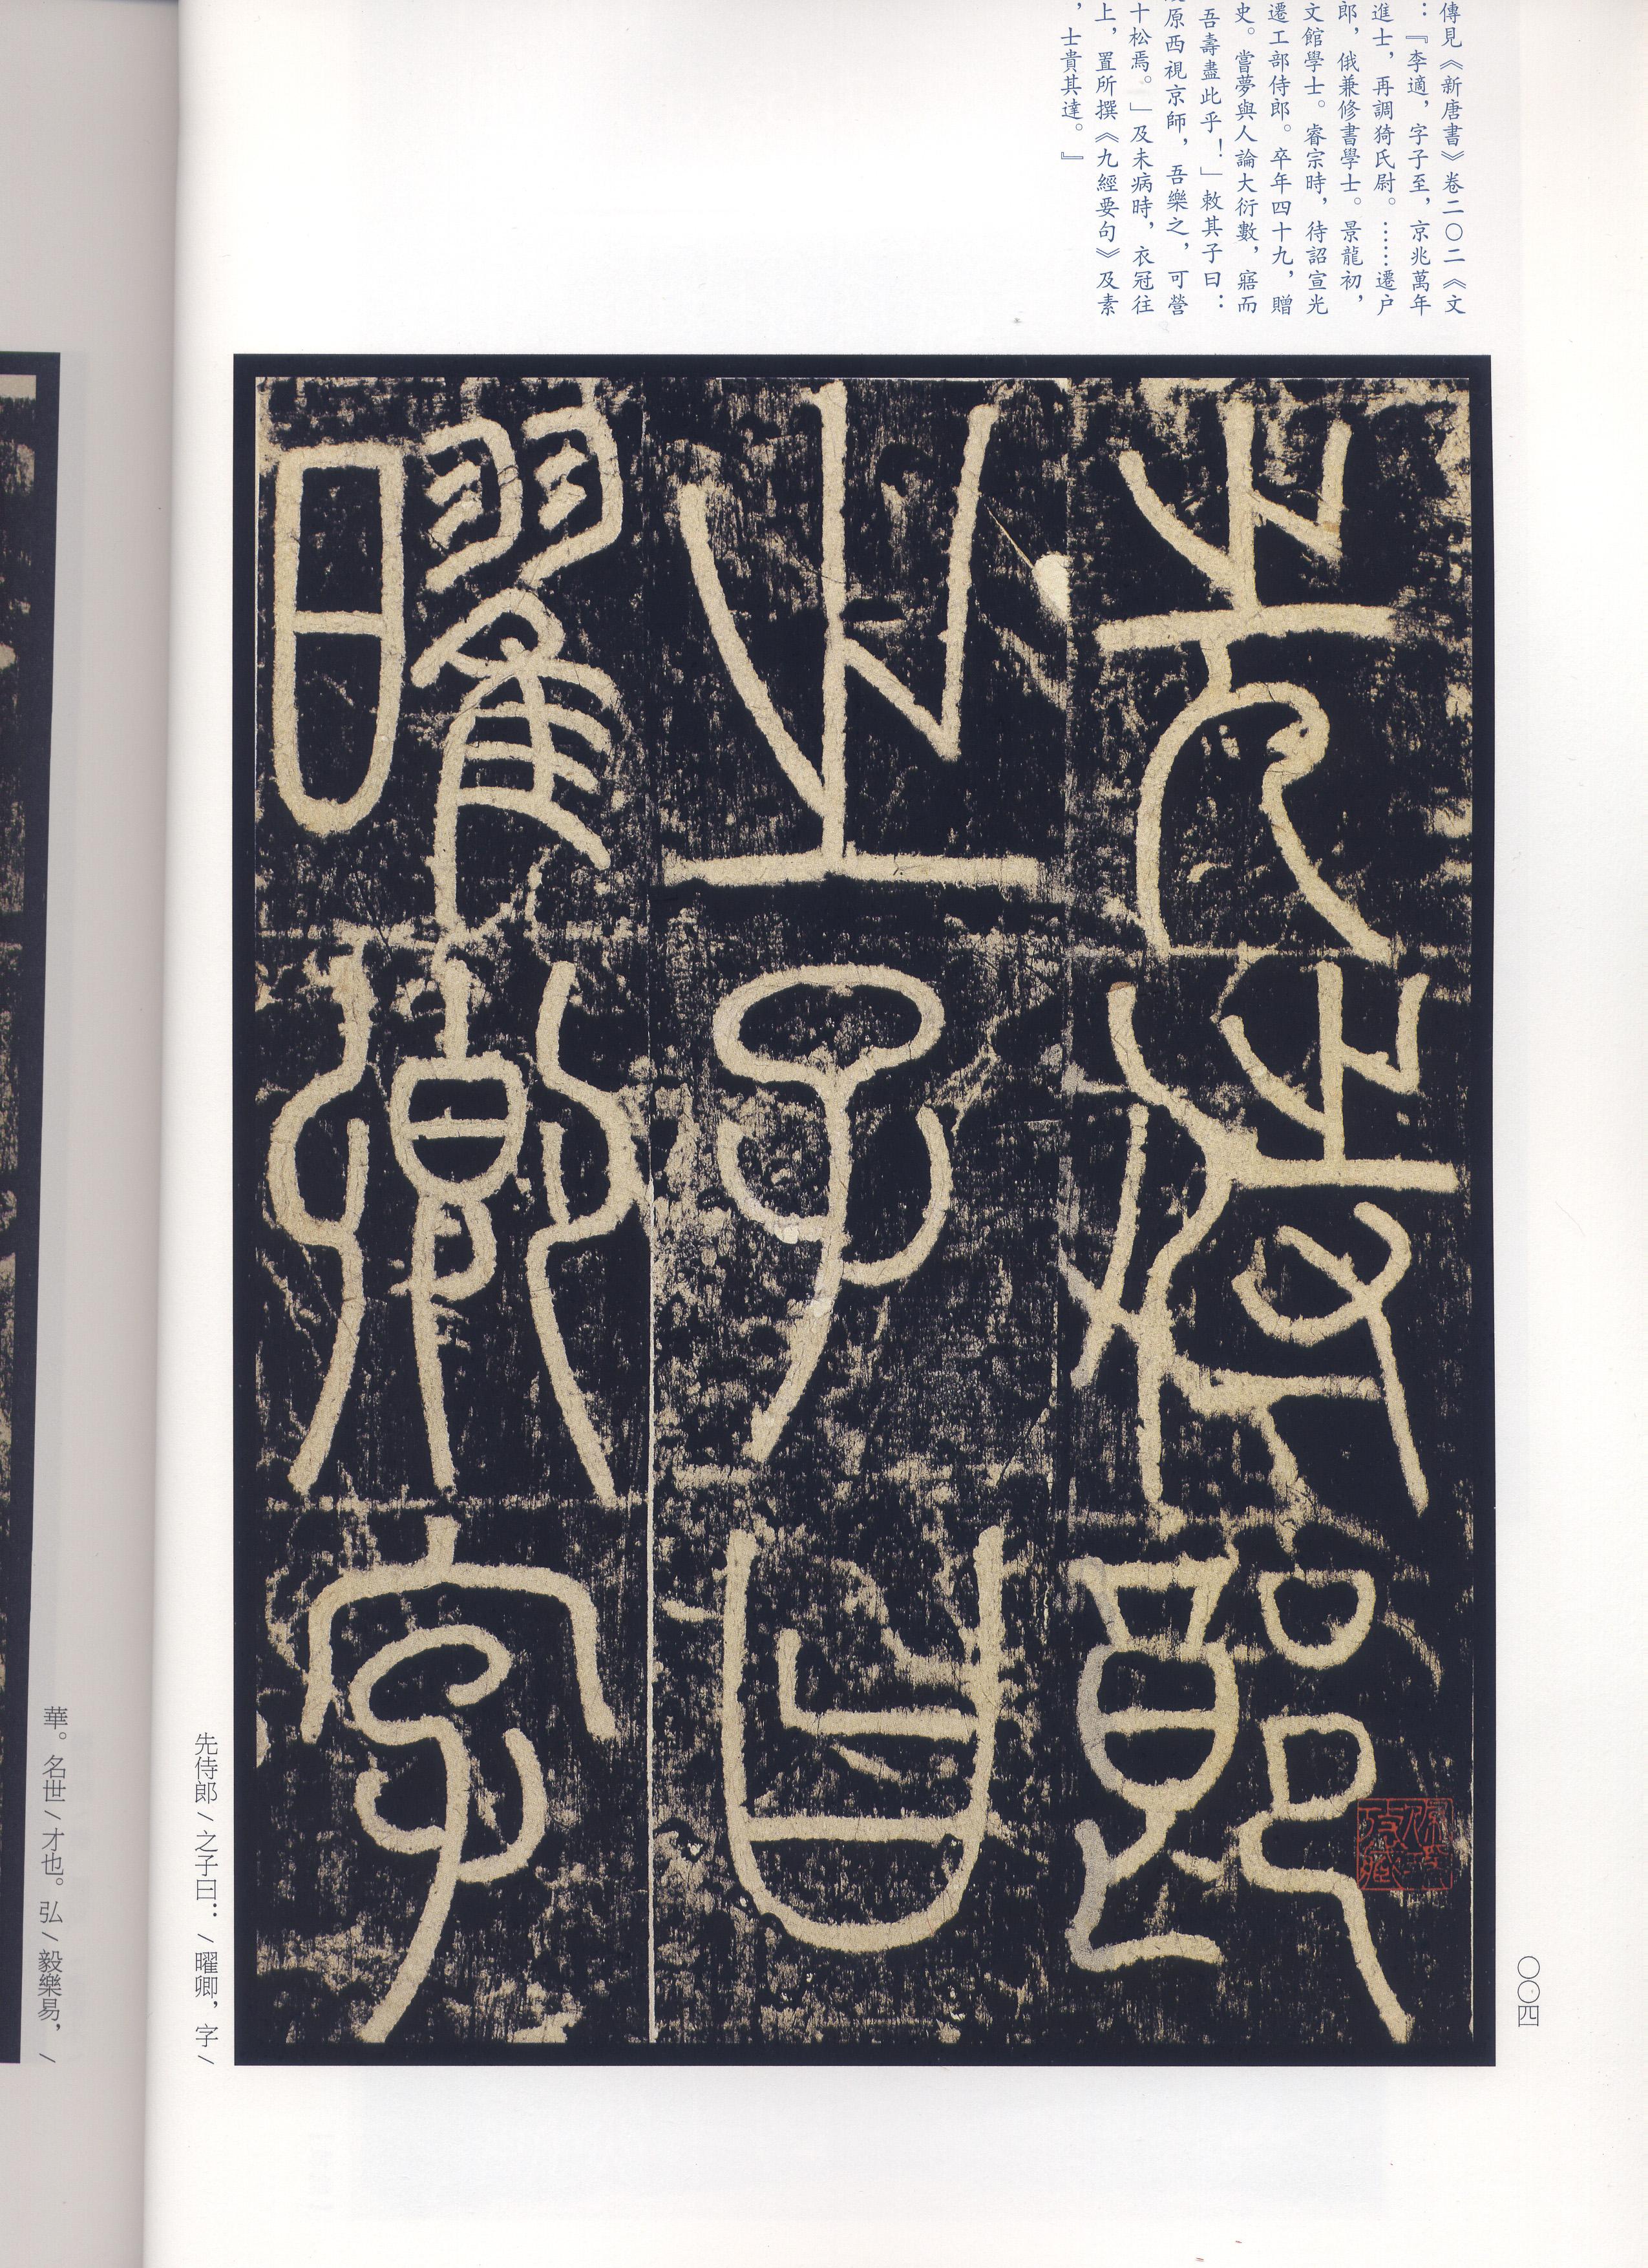 傳見《新唐書》卷二〇二《文
：『李適，字子至，京兆萬年
進士，再調猗氏尉。……遷户
郎，俄兼修書學士。景龍初，
文館學士。睿宗時，待詔宣光
遷工部侍郎。卒年四十九，贈
史。嘗夢與人論大衍數，寤而
吾壽盡此乎！」敕其子曰：
原西視京師，吾樂之，可營
十松焉。」及未病時，衣冠往
上，置所撰《九經要句》及素
，士貴其達。』
先侍郎
之子曰
曜卿字
〇〇四
先侍郎／之子曰：／曜卿，字／
華。名世／才也。弘／毅樂易，／